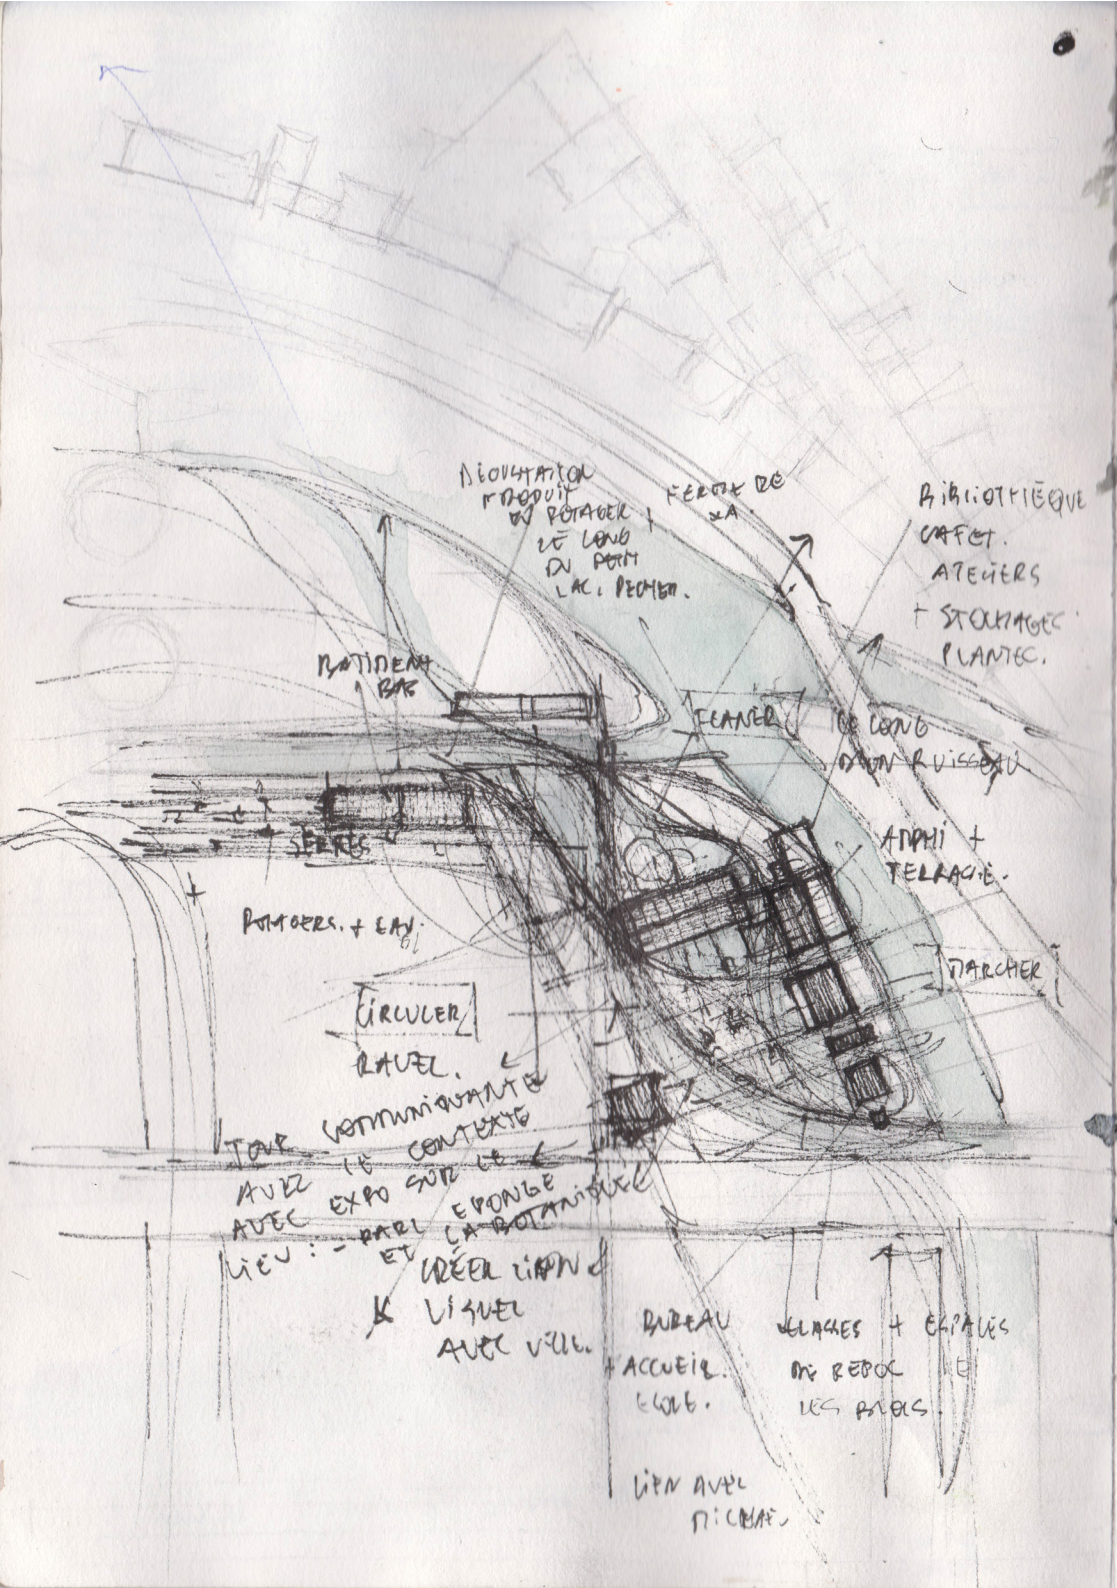 DÉGUSTATION
PRODUIT
DU POTAGER +
LE LONG
DU PETIT
LAC.
FERME DE
BIBLIOTHÈQUE
CAFET.
ATELIERS
+ STOCKAGES
PLANTES.
BATIMENT
BAS
FLANER
LE LONG
D'UN RUISSEAU
SERRES
AMPHI +
TERRASSE.
POTAGERS. + EAU
MARCHER
CIRCULER
RAVEL.
TOUR COMMUNIQUANTE
AVEC LE CONTEXTE
AVEC EXPO SUR LE
LIEU : - PARC EPONGE
ET LA BOTANIQUE
CRÉER LIEN
VISUEL
AVEC VILLE.
BUREAU
+ ACCUEIL.
ECOLE.
CLASSES + ESPACES
DE REPOS
LES BLOCS.
LIEN AVEC